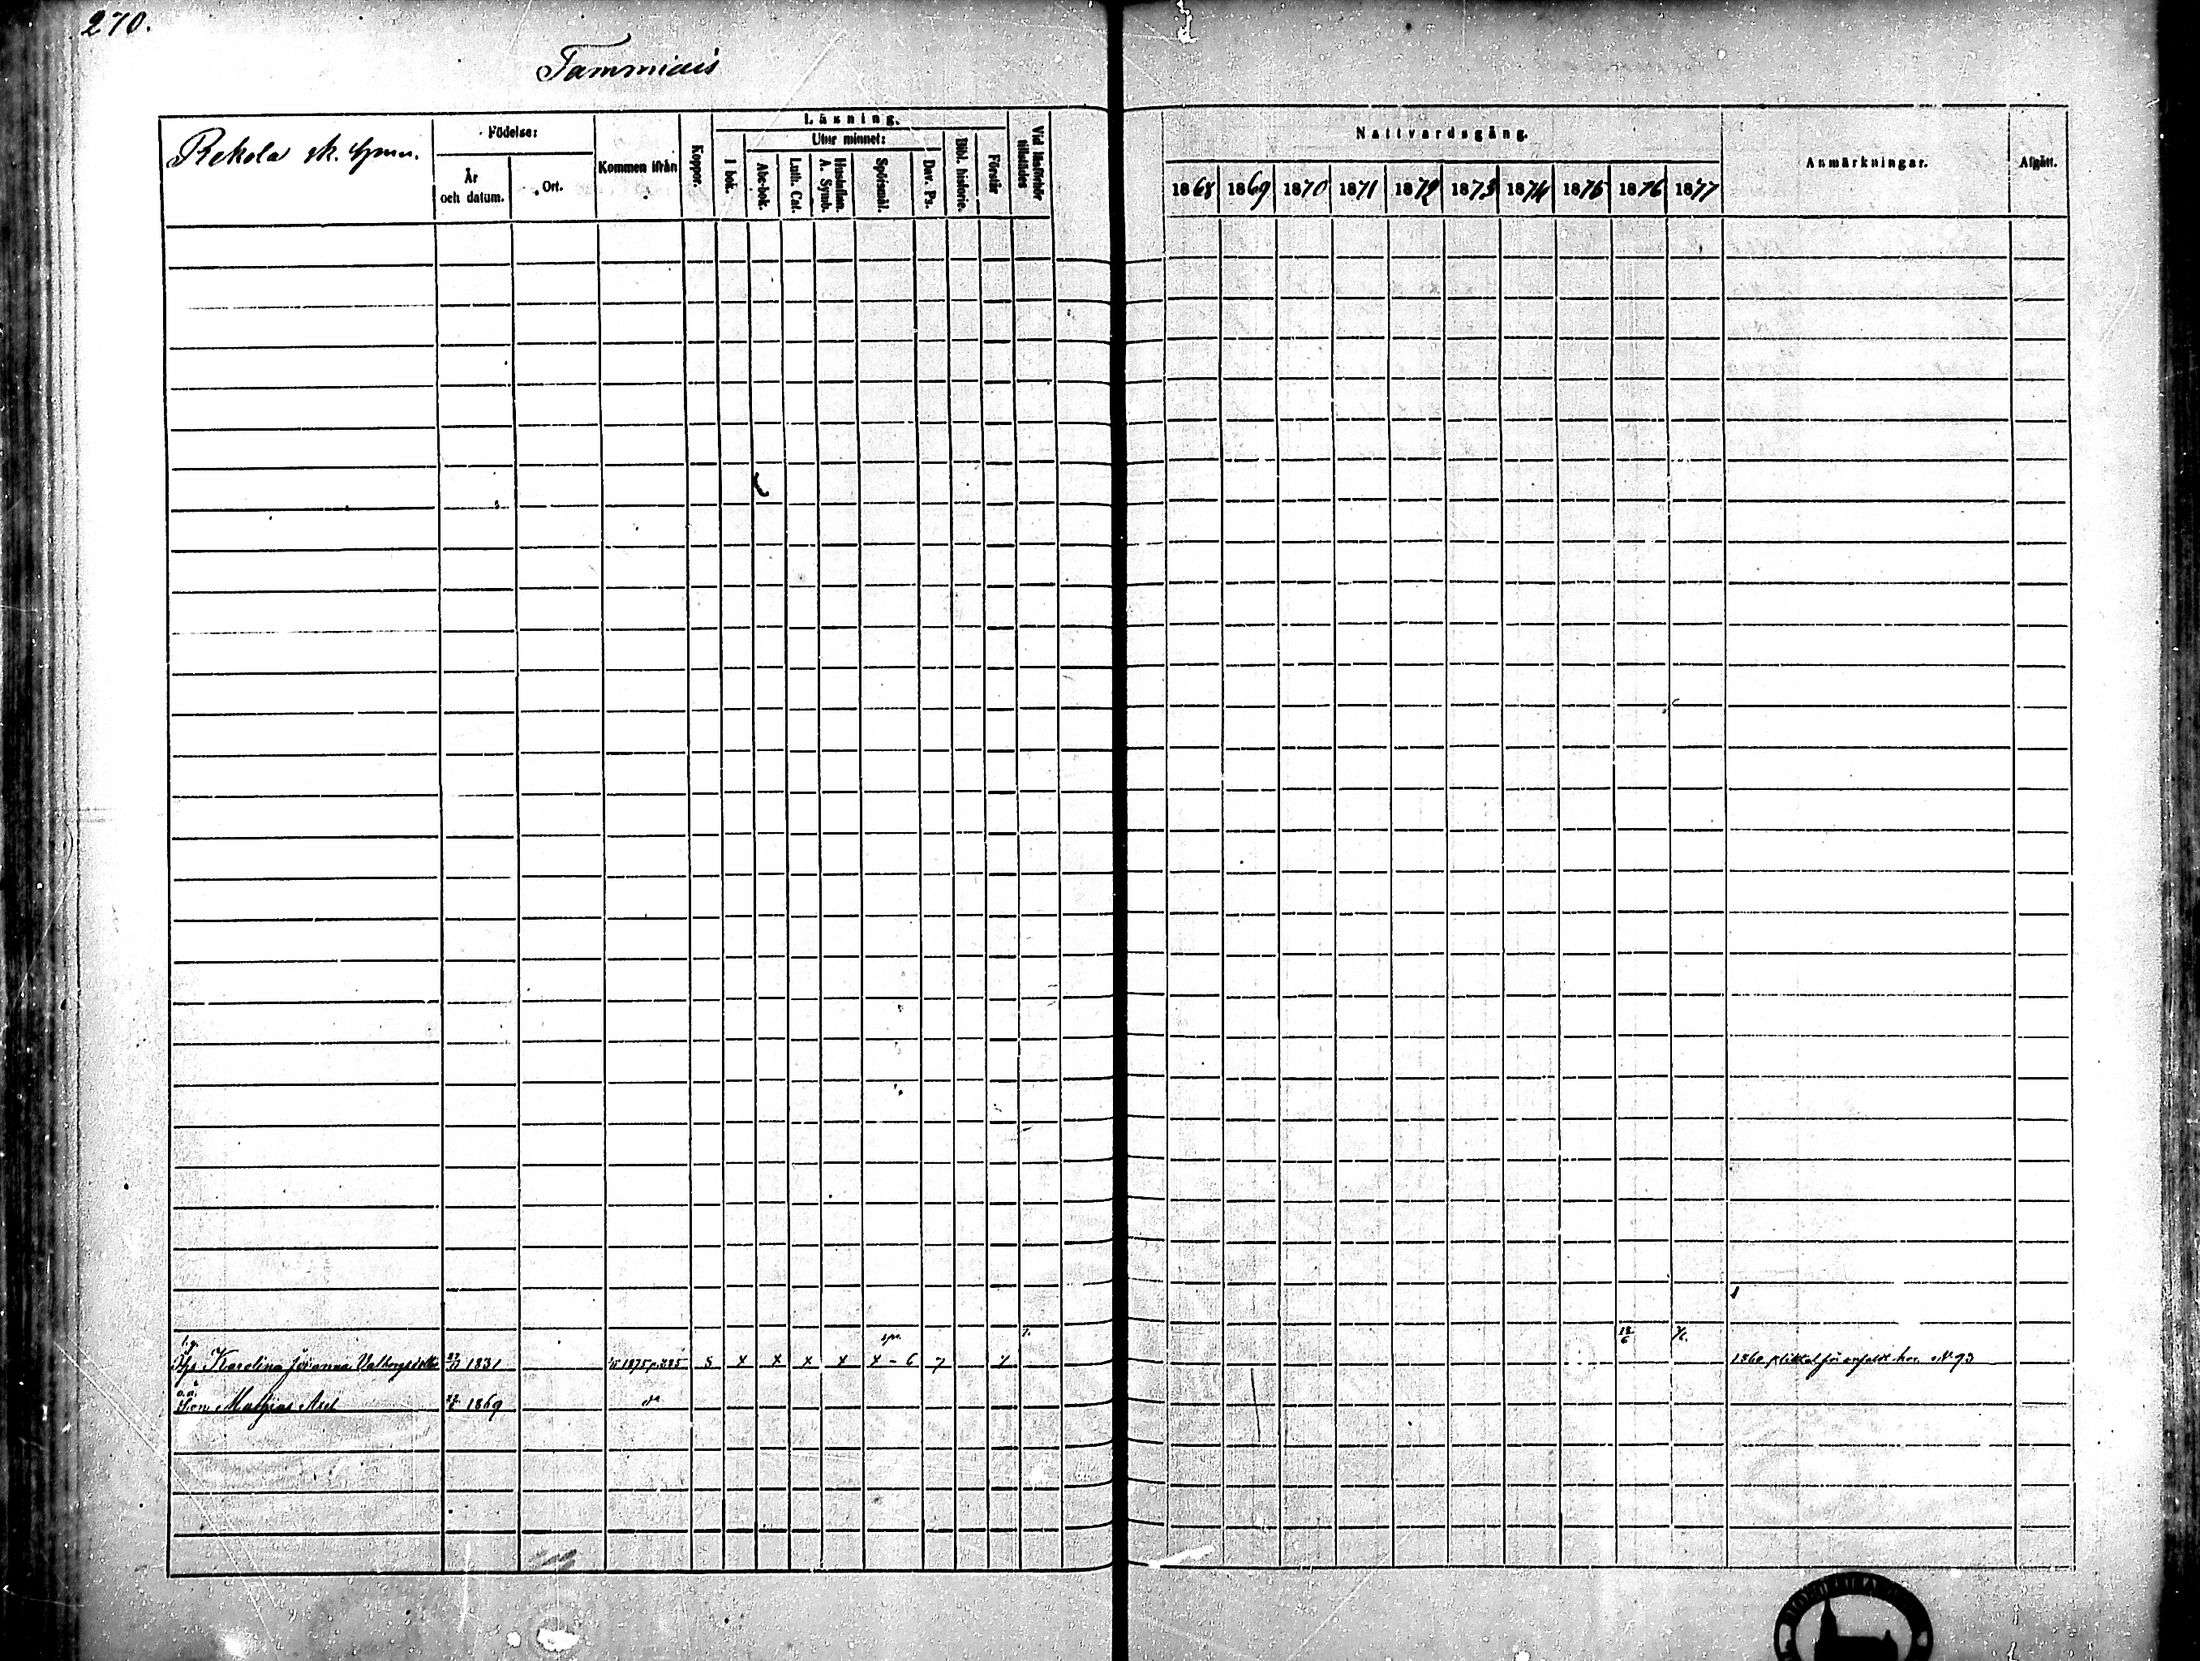 270.
Tammiais
Rekola sk. hmn.
Födelse:
År och datum.
Ort.
Kommen ifrån
Koppor.
Läsning.
I bok.
Utur minnet:
Abc-bok.
Luth. Cat.
A. Symb.
Hustaflan.
Spörsmål.
Dav. Ps.
Bibl. historie.
Förstår
Vid läsförhör tillstädes
Nattvardsgång.
1868 1869 1870 1871 1872 1873 1874 1875 1876 1877
Anmärkningar.
Afgått.
Karolina Johanna Valborgsdotter 1831 1875 p. 285 s x x x x x - 6 7 x 1860 för N 93
Son Mathias Axel 1869 do